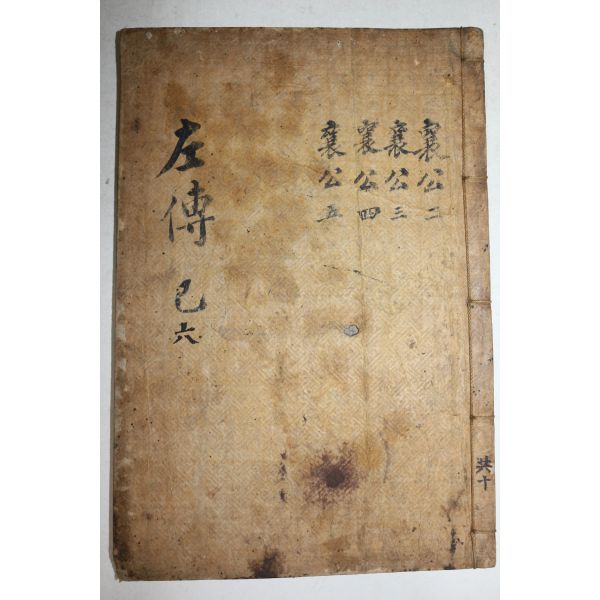 襄公二
襄公三
襄公四
襄公五
左傳 己
六
共十